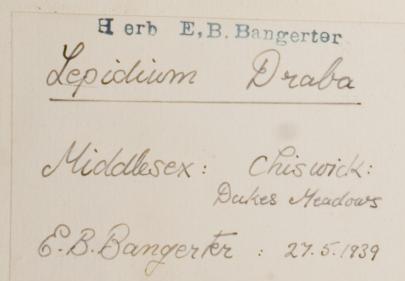 Herb E,B.Bangerter
Lepidium Draba
Middlesex: Chiswick:
Dukes Meadows
E.B.Bangerter : 27.5.1939